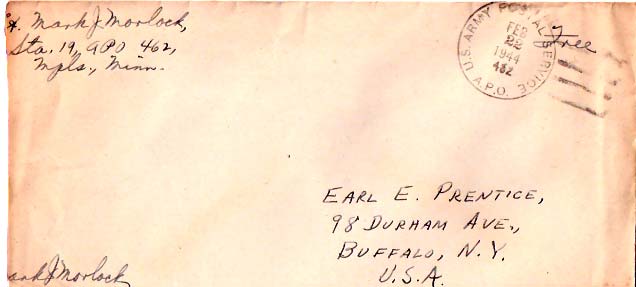 Lt. Mark J Morlock,
Sta. 19, APO 462,
Mpls., Minn.
U.S. ARMY POSTAL SERVICE
FEB
22
1944
462
A.P.O.
Free
EARL E. PRENTICE,
98 DURHAM AVE.,
BUFFALO, N.Y.
U.S.A.
ark J Morlock